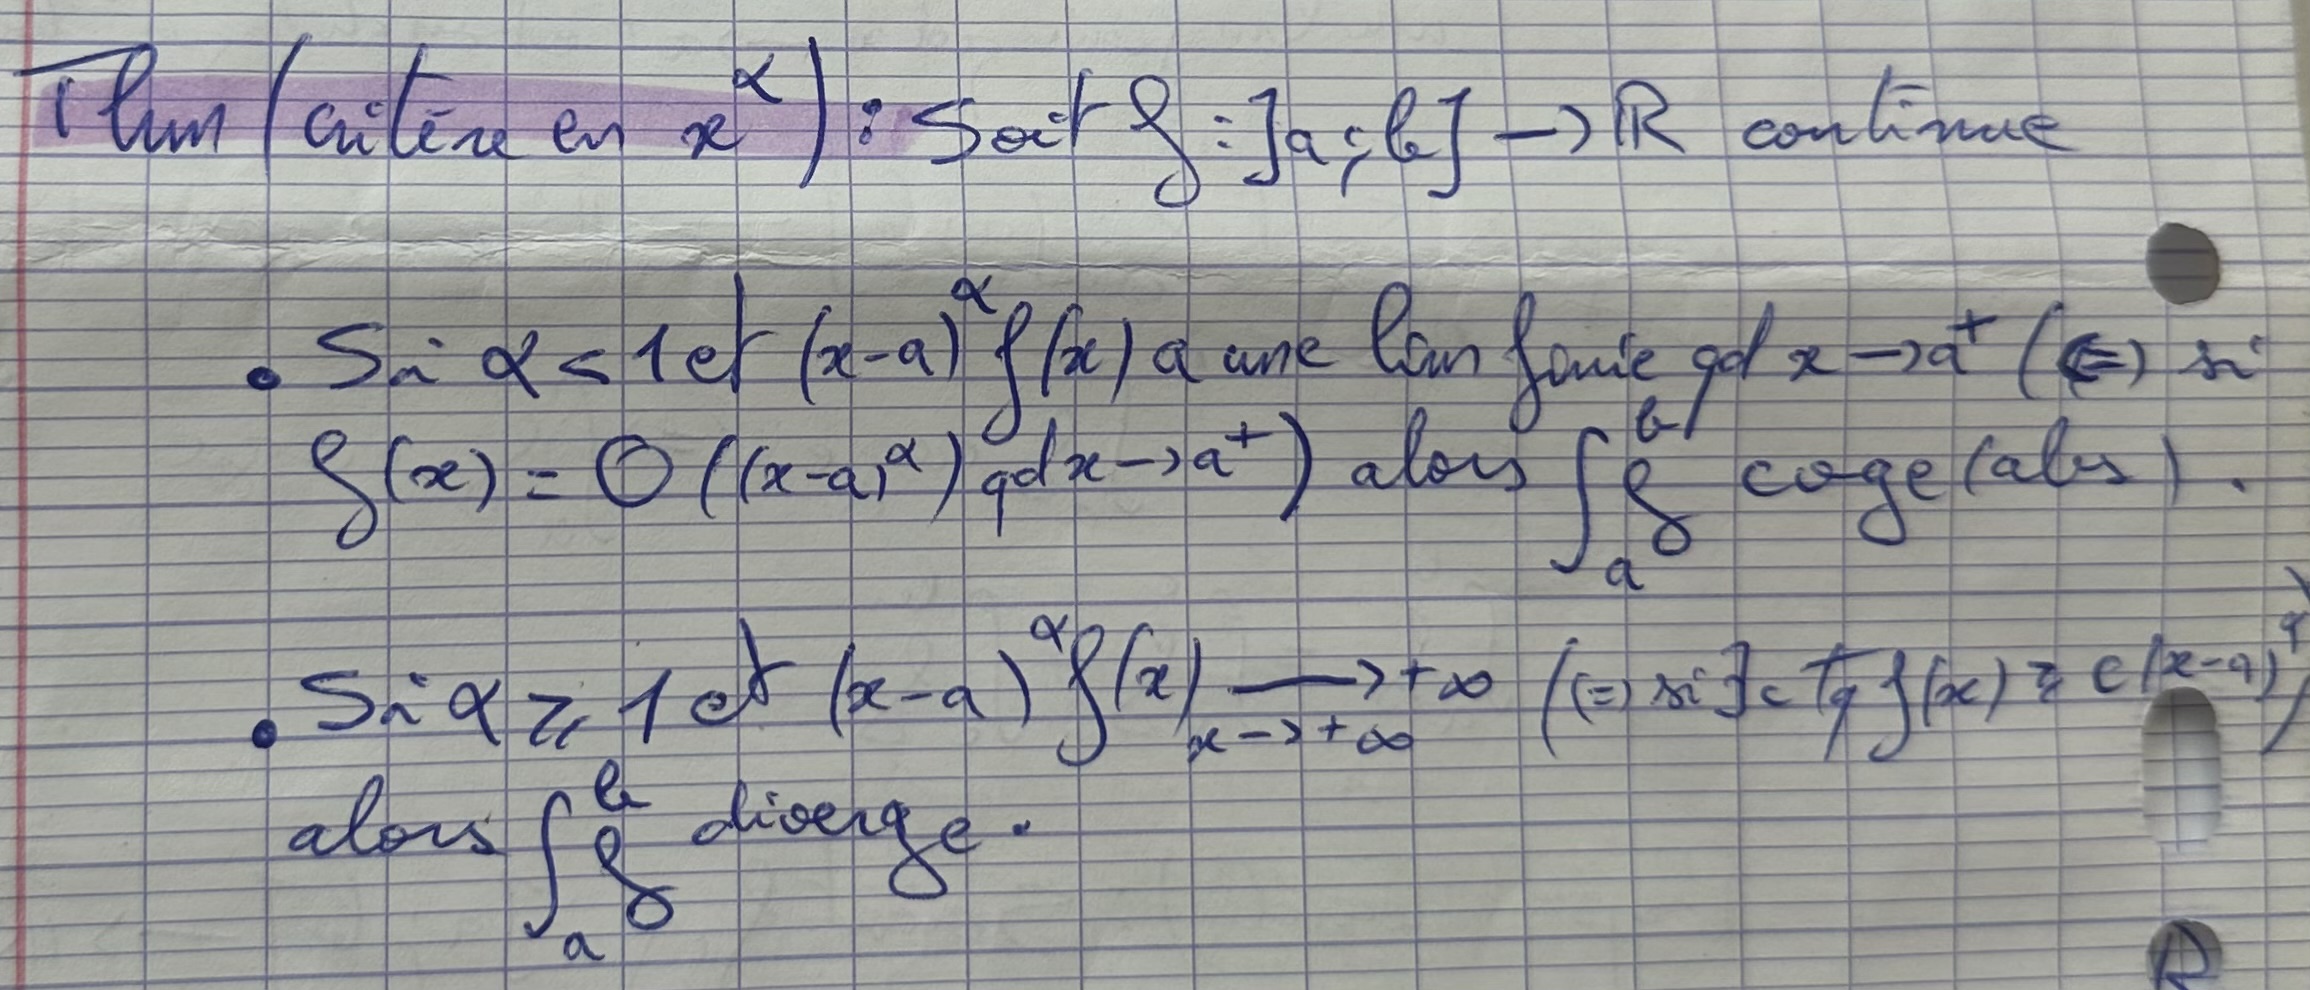 Thm (critère en x^α) : Soit f : ]a ; b] → ℝ continue
• Si α < 1 et (x-a)^α f(x) a une lim finie qd x → a⁺ (⇔ si
f(x) = O((x-a)^α) qd x → a⁺) alors ∫_a^b f coge (abs).
• Si α ⩾ 1 et (x-a)^α f(x) ⟶_{x → +∞} +∞ (⇔ si ∃c tq f(x) ⩾ c(x-a)^α)
alors ∫_a^b f diverge.